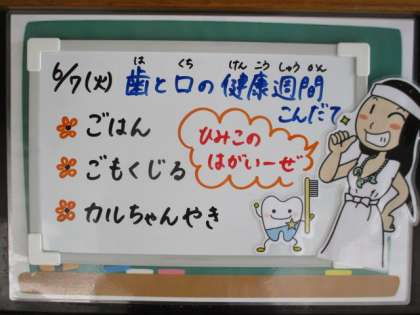 6/7(火) 歯と口の健康週間
は くち けん こう しゅう かん
こんだて
ごはん
ごもくじる
カルちゃんやき
ひみこの
はがいーぜ